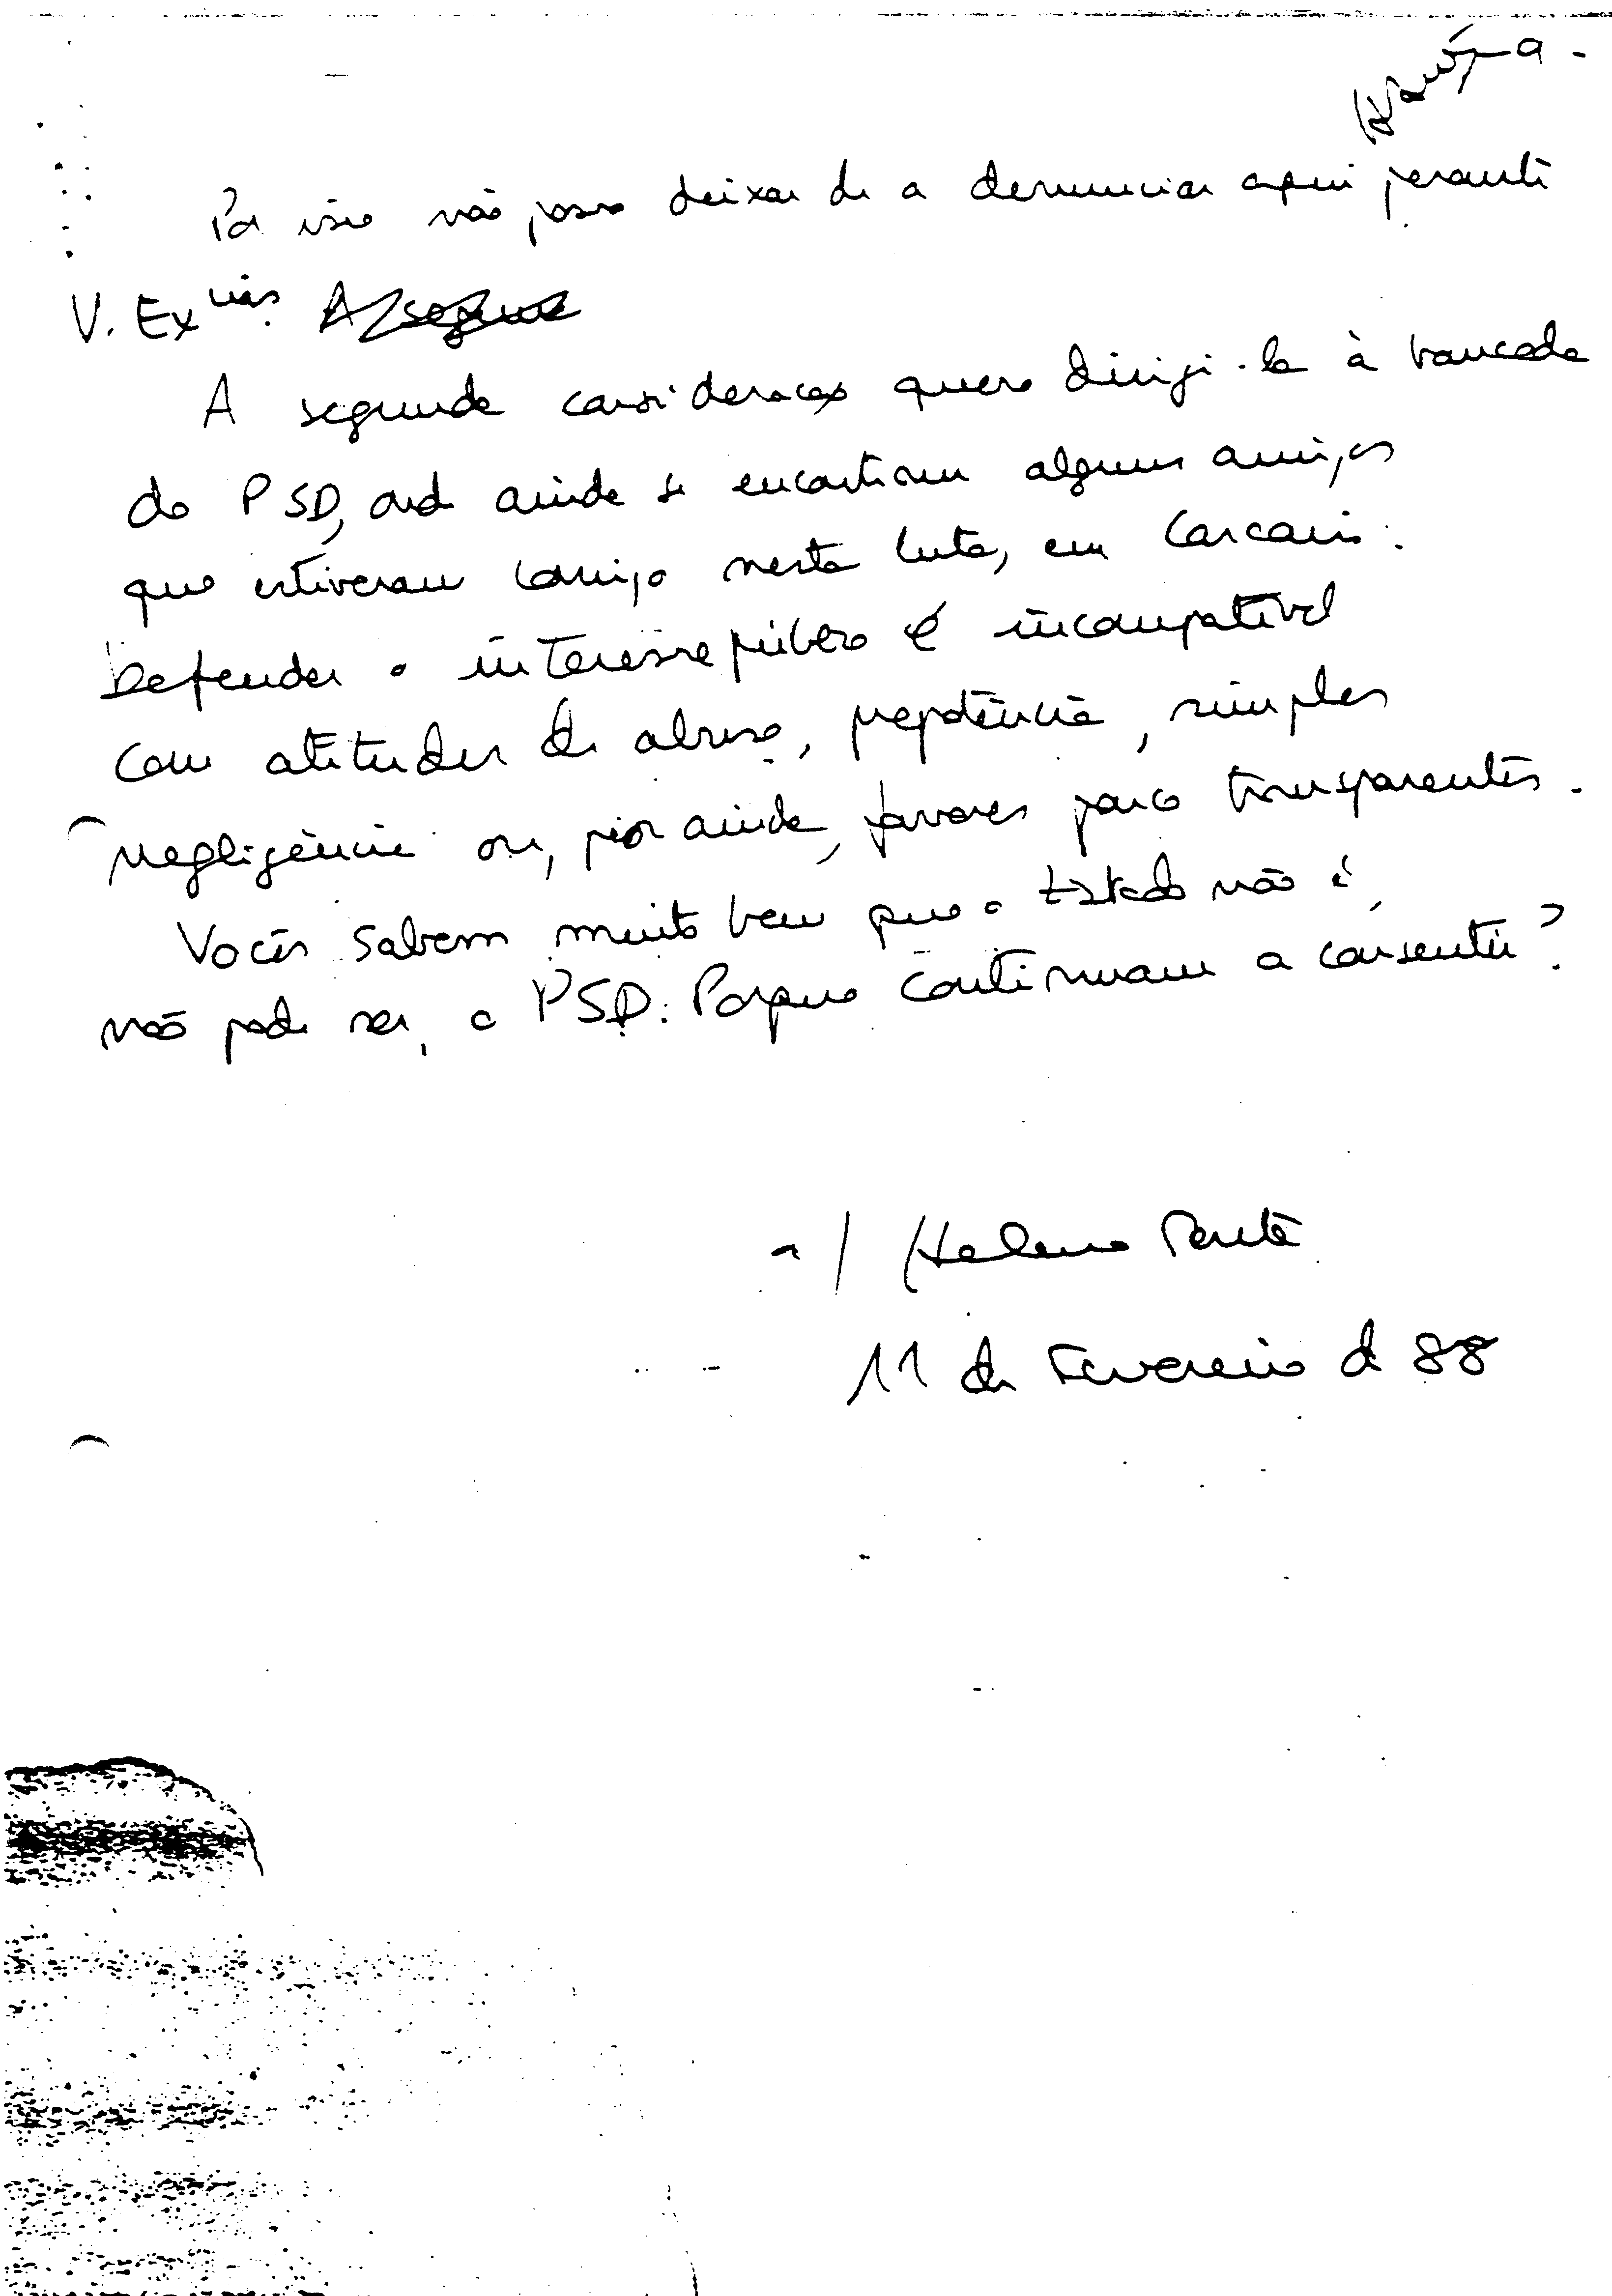 Por isso não posso deixar de a denunciar aqui perante
V. Ex^cias. A segunda
A segunda consideração quero dirigi-la à bancada
do PSD, onde ainda se encontram alguns amigos
que estiveram comigo nesta luta, em Cascais.
Defender o interesse público é incompatível
com atitudes de abuso, prepotência, simples
negligência ou, pior ainda, favores pouco transparentes.
Vocês sabem muito bem que o Estado não é,
não pode ser, o PSD. Porque continuam a consentir?
a) Helena Roseta
11 de Fevereiro de 88